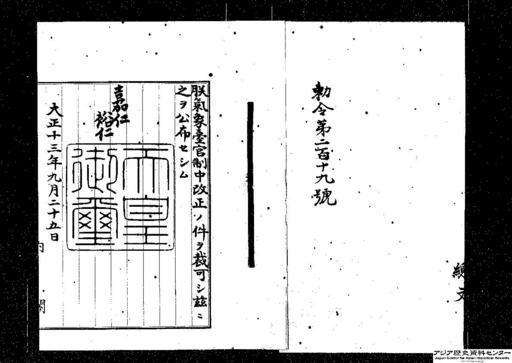 勅令第二百十九號
朕氣象臺官制中改正ノ件ヲ裁可シ茲ニ
之ヲ公布セシム
嘉仁
裕仁
天皇御璽
大正十三年九月二十五日
内閣
アジア歴史資料センター
Japan Center for Asian Historical Records